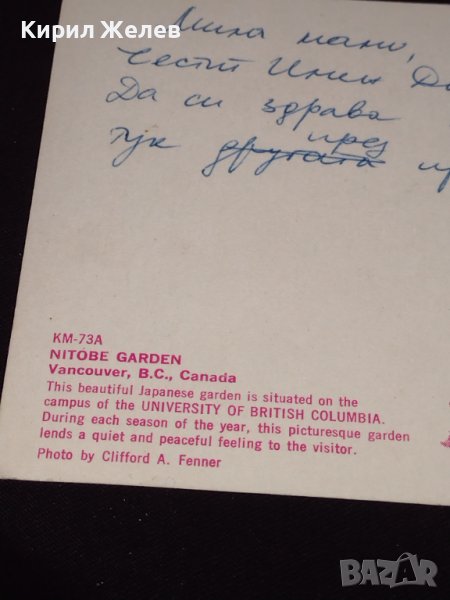 Кирил Желев
Мила мами,
Честит Имен
Да си здрава
през
тук другата
KM-73A
NITOBE GARDEN
Vancouver, B.C., Canada
This beautiful Japanese garden is situated on the
campus of the UNIVERSITY OF BRITISH COLUMBIA.
During each season of the year, this picturesque garden
lends a quiet and peaceful feeling to the visitor.
Photo by Clifford A. Fenner
BAZAR